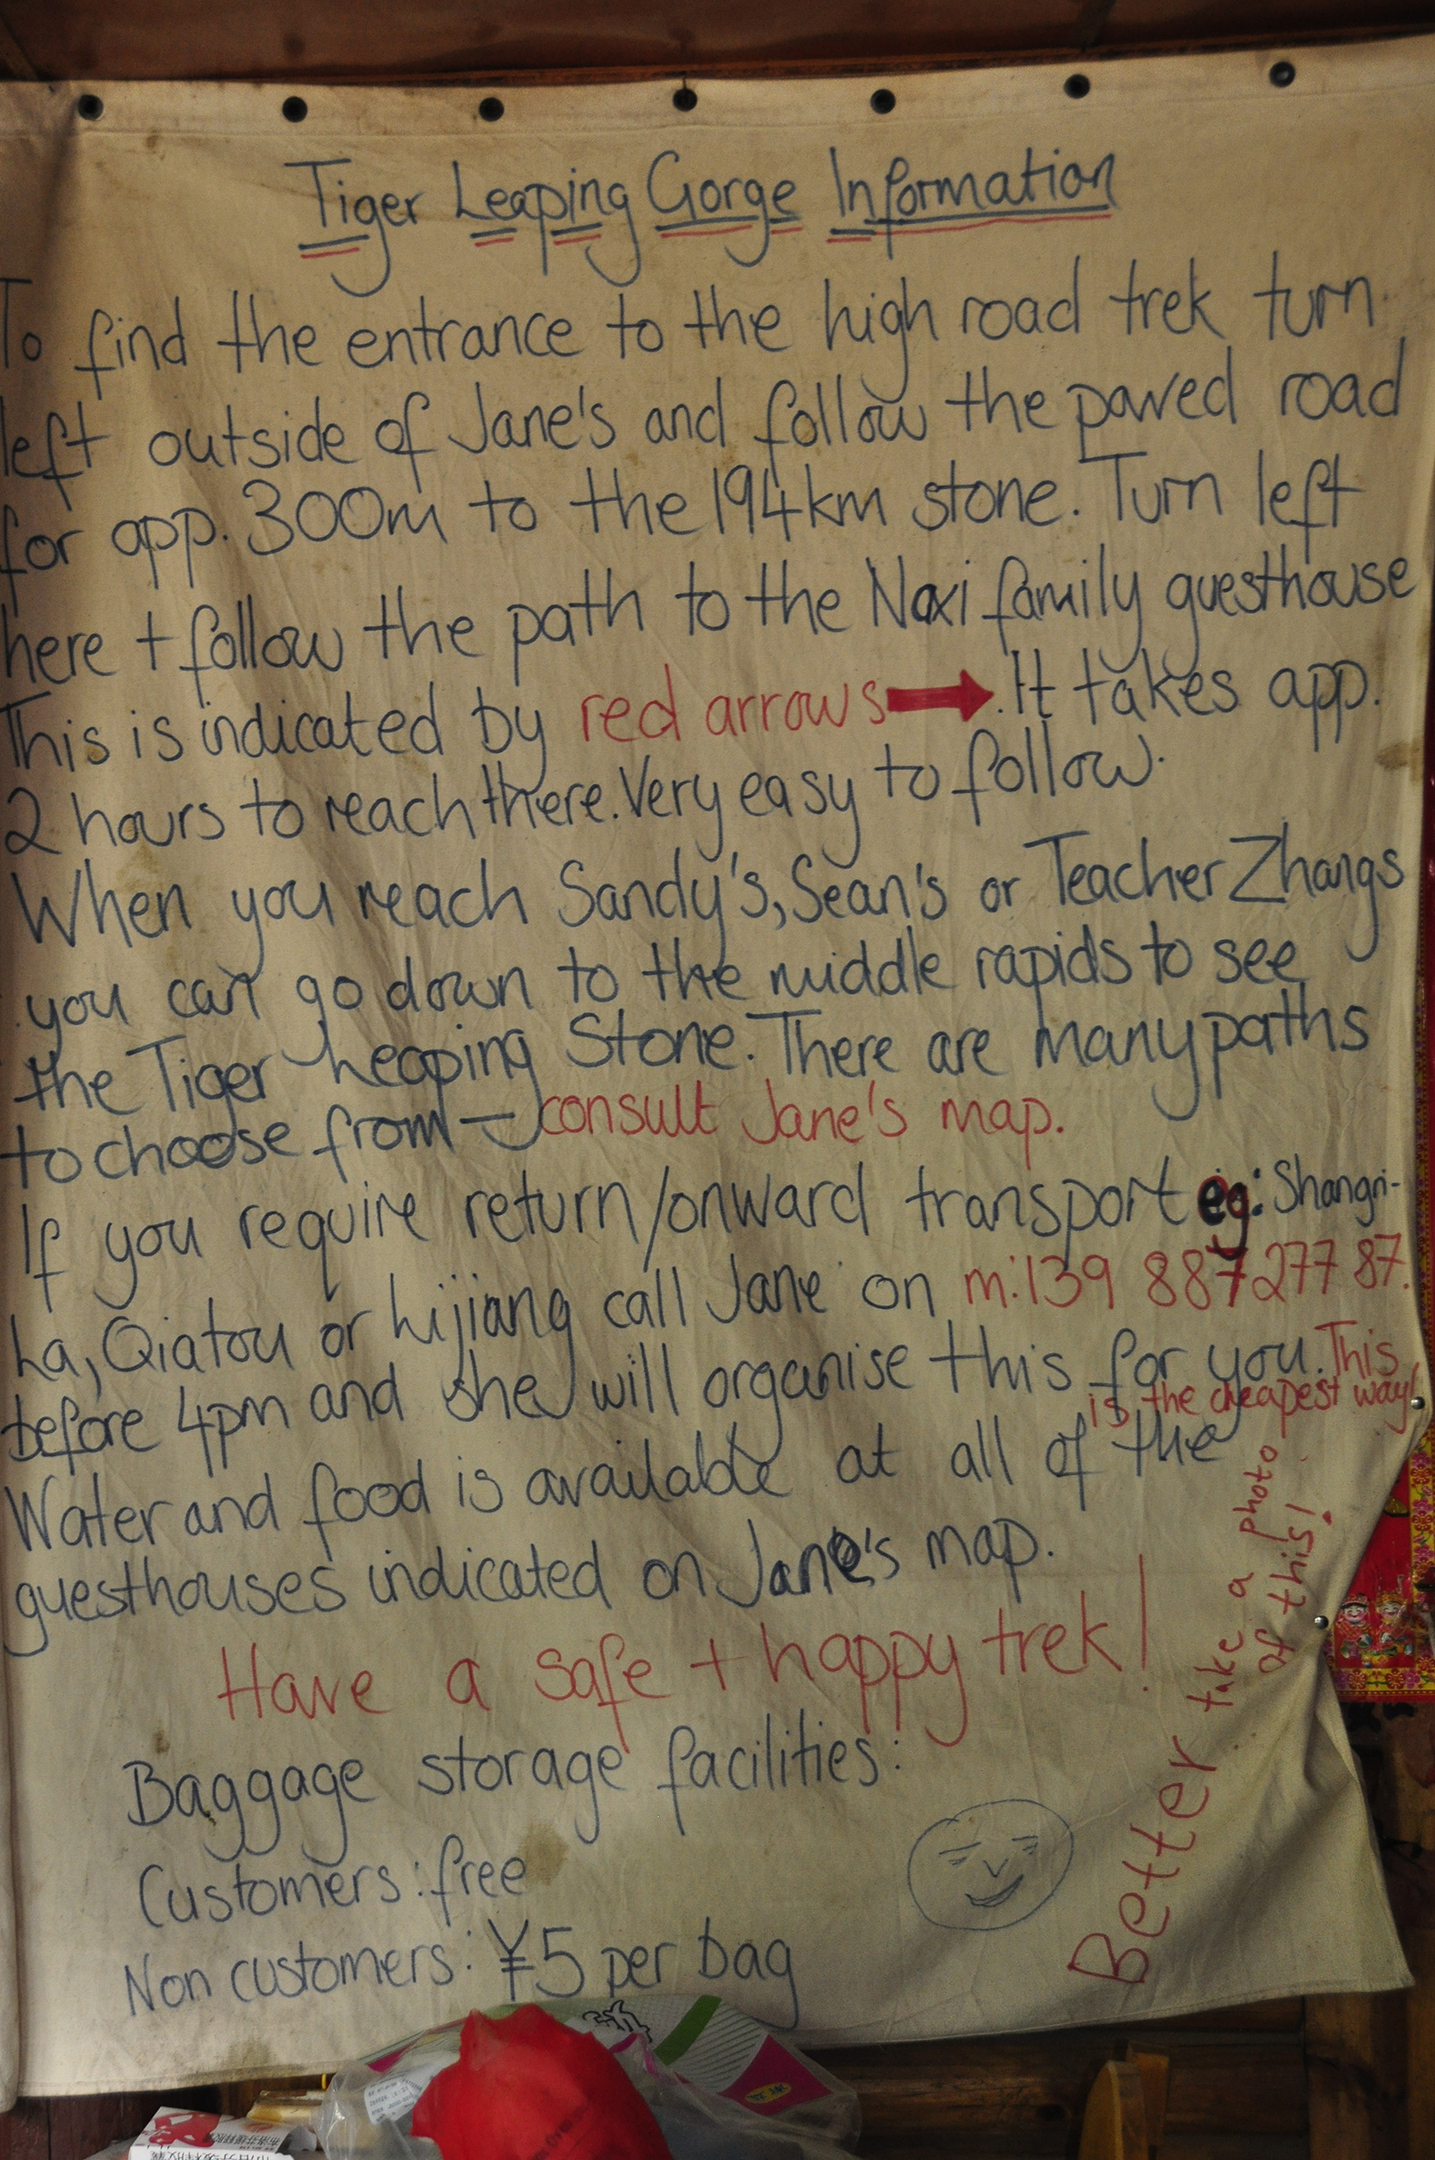 Tiger Leaping Gorge Information
To find the entrance to the high road trek turn
left outside of Jane's and follow the paved road
for app. 300m to the 194km stone. Turn left
here + follow the path to the Naxi family guesthouse
This is indicated by red arrows → . It takes app.
2 hours to reach there. Very easy to follow.
When you reach Sandy's, Sean's or Teacher Zhangs
you can go down to the middle rapids to see
the Tiger Leaping Stone. There are many paths
to choose from - consult Jane's map.
If you require return/onward transport eg: Shangri-
La, Qiatou or Lijiang call Jane on m: 139 887 277 87.
before 4pm and she will organise this for you. This
is the cheapest way!
Water and food is available at all of the
guesthouses indicated on Jane's map.
Have a safe + happy trek!
Baggage storage facilities:
Customers: free
Non customers: ¥5 per bag
Better take a photo
of this!